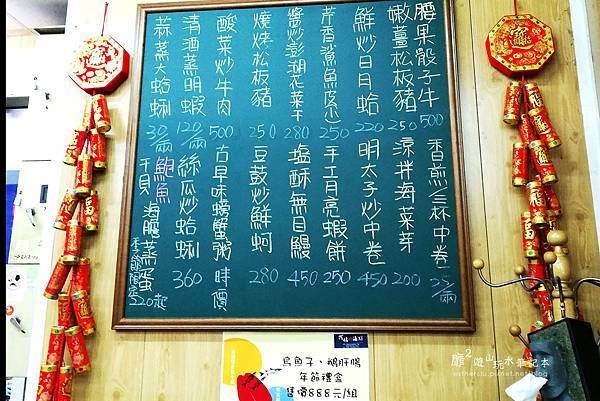 腰果骰子牛 500
嫩薑松板豬 250
鮮炒日月蛤 220
芹香鯊魚(大小) 250
醬炒澎湖花菜干 280
燒烤松板豬 250
酸菜炒牛肉 500
清酒蒸明蝦 120/兩
蒜蒸大蛤蜊 30/兩
香煎/三杯中卷 25/兩
涼拌海菜芽 200
明太子炒中卷 450
手工月亮蝦餅 250
鹽酥無目鰻 450
豆鼓炒鮮蚵 280
古早味螃蟹粥 時價
絲瓜炒蛤蜊 360
鮑魚
干貝 海膽蒸蛋 季節限定 220起
烏魚子、鵝肝腸
年節禮盒
售價888元/組
靡²遊山玩水筆記本